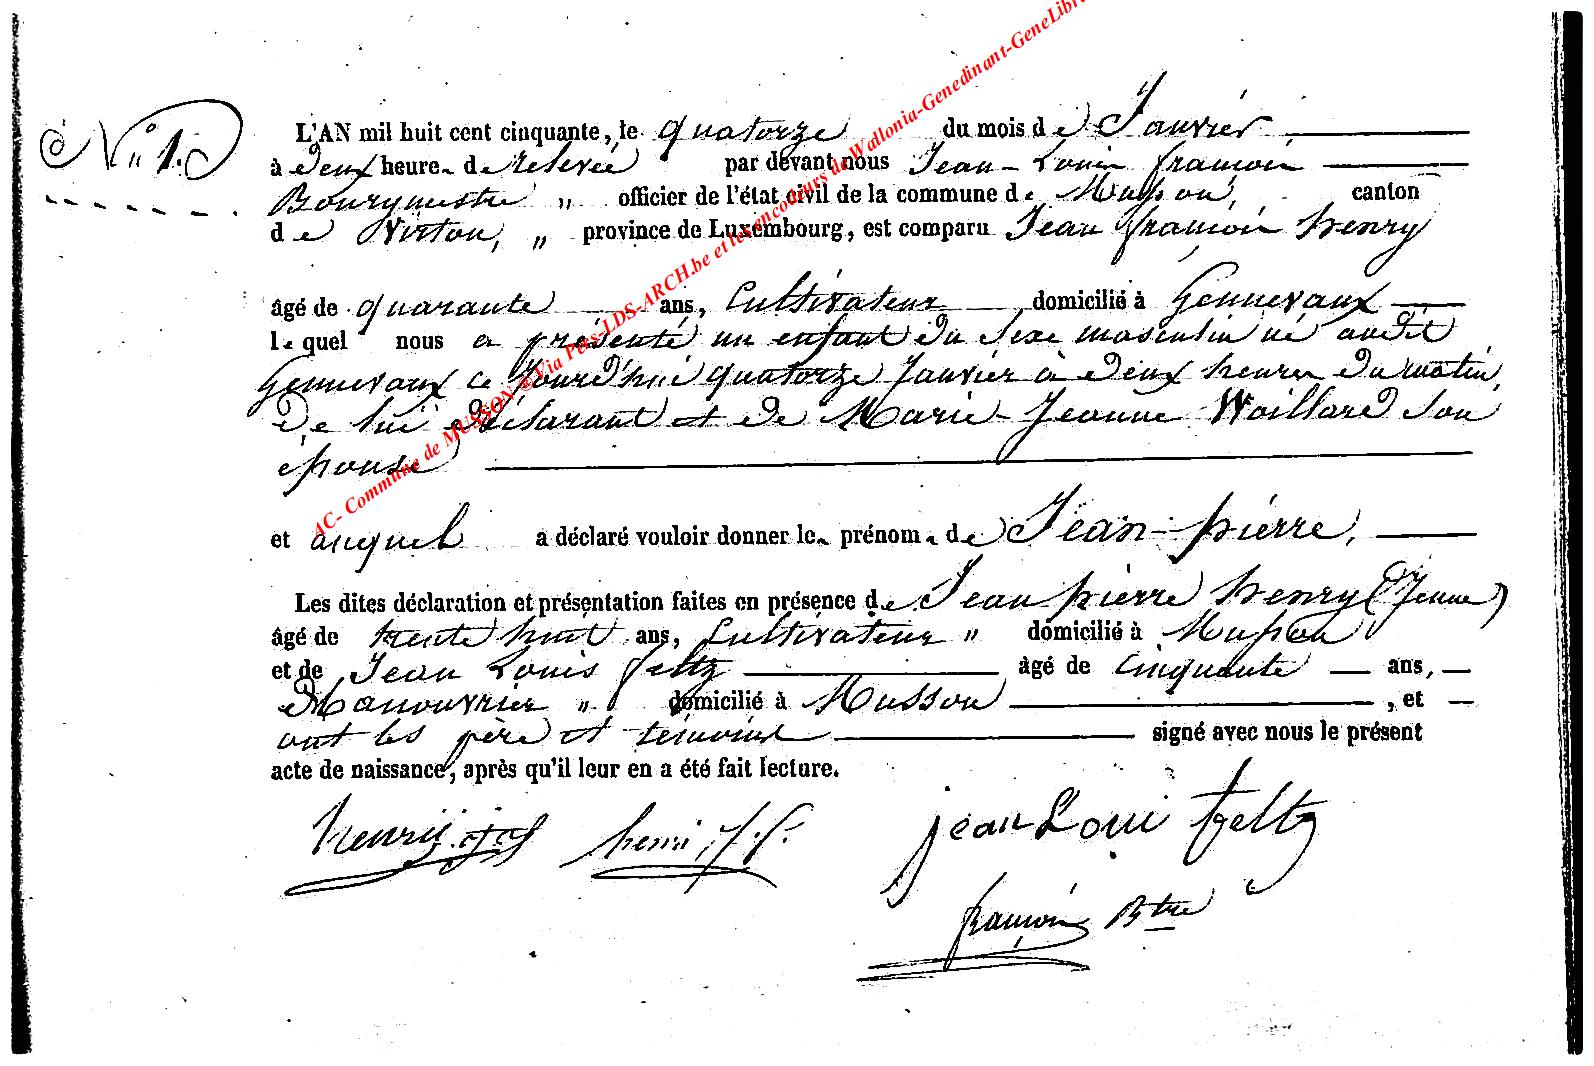 N° 1.
L'AN mil huit cent cinquante, le quatorze du mois de Janvier
à deux heures de relevée par devant nous Jean-Louis françois
Bourgmestre " officier de l'état civil de la commune de Musson, canton
de Virton, " province de Luxembourg, est comparu Jean françois henry
âgé de quarante ans, Cultivateur domicilié à Gennevaux
lequel nous a présenté un enfant du sexe masculin né audit
Gennevaux ce jourd'hui quatorze Janvier à deux heures du matin,
de lui déclarant et de Marie-Jeanne Waillard son
épouse
et auquel a déclaré vouloir donner les prénoms de Jean-pierre,
Les dites déclaration et présentation faites en présence de Jean pierre henry (Jeune)
âgé de trente huit ans, Cultivateur " domicilié à Musson
et de Jean Louis feltz âgé de Cinquante ans,
Manouvrier " domicilié à Musson , et
ont les père et témoins signé avec nous le présent
acte de naissance, après qu'il leur en a été fait lecture.
henri, J.f. jean Loui feltz
françois Btre
AC- Commune de MUSSON ©Via Pels-LDS-ARCH.be et les encodeurs de Wallonia-Genedinant-GeneLibr